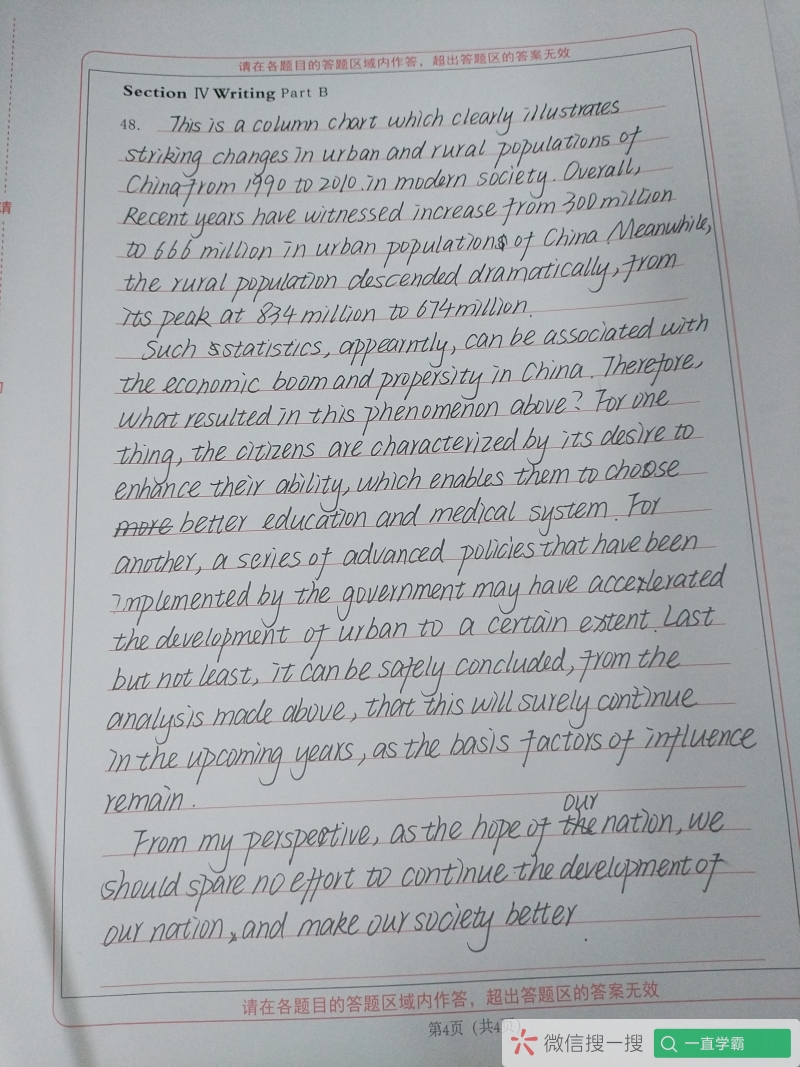 请在各题目的答题区域内作答，超出答题区的答案无效
Section IV Writing Part B
48. This is a column chart which clearly illustrates
striking changes in urban and rural populations of
China from 1990 to 2010 in modern society. Overall,
Recent years have witnessed increase from 300 million
to 666 million in urban populations of China. Meanwhile,
the rural population descended dramatically, from
its peak at 834 million to 674 million.
Such statistics, appearntly, can be associated with
the economic boom and propersity in China. Therefore,
what resulted in this phenomenon above? For one
thing, the citizens are characterized by its desire to
enhance their ability, which enables them to choose
more better education and medical system. For
another, a series of advanced policies that have been
implemented by the government may have accerlerated
the development of urban to a certain extent. Last
but not least, it can be safely concluded, from the
analysis made above, that this will surely continue
in the upcoming years, as the basis factors of influence
remain.
our
From my perspective, as the hope of the nation, we
should spare no effort to continue the development of
our nation, and make our society better.
请在各题目的答题区域内作答，超出答题区的答案无效
第4页（共4页）
微信搜一搜
一直学霸
请